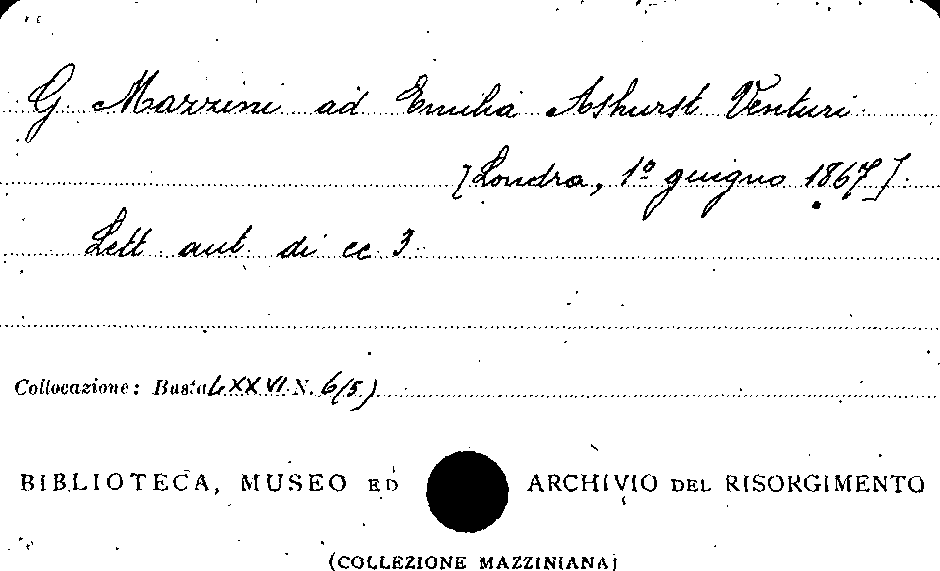 G. Mazzini ad Emilia Ashurst Venturi
[Londra, 1º giugno 1867].
Lett. aut. di cc. 3.
Collocazione: Busta LXXVI N. 6(5)
BIBLIOTECA, MUSEO ED ARCHIVIO DEL RISORGIMENTO
(COLLEZIONE MAZZINIANA)